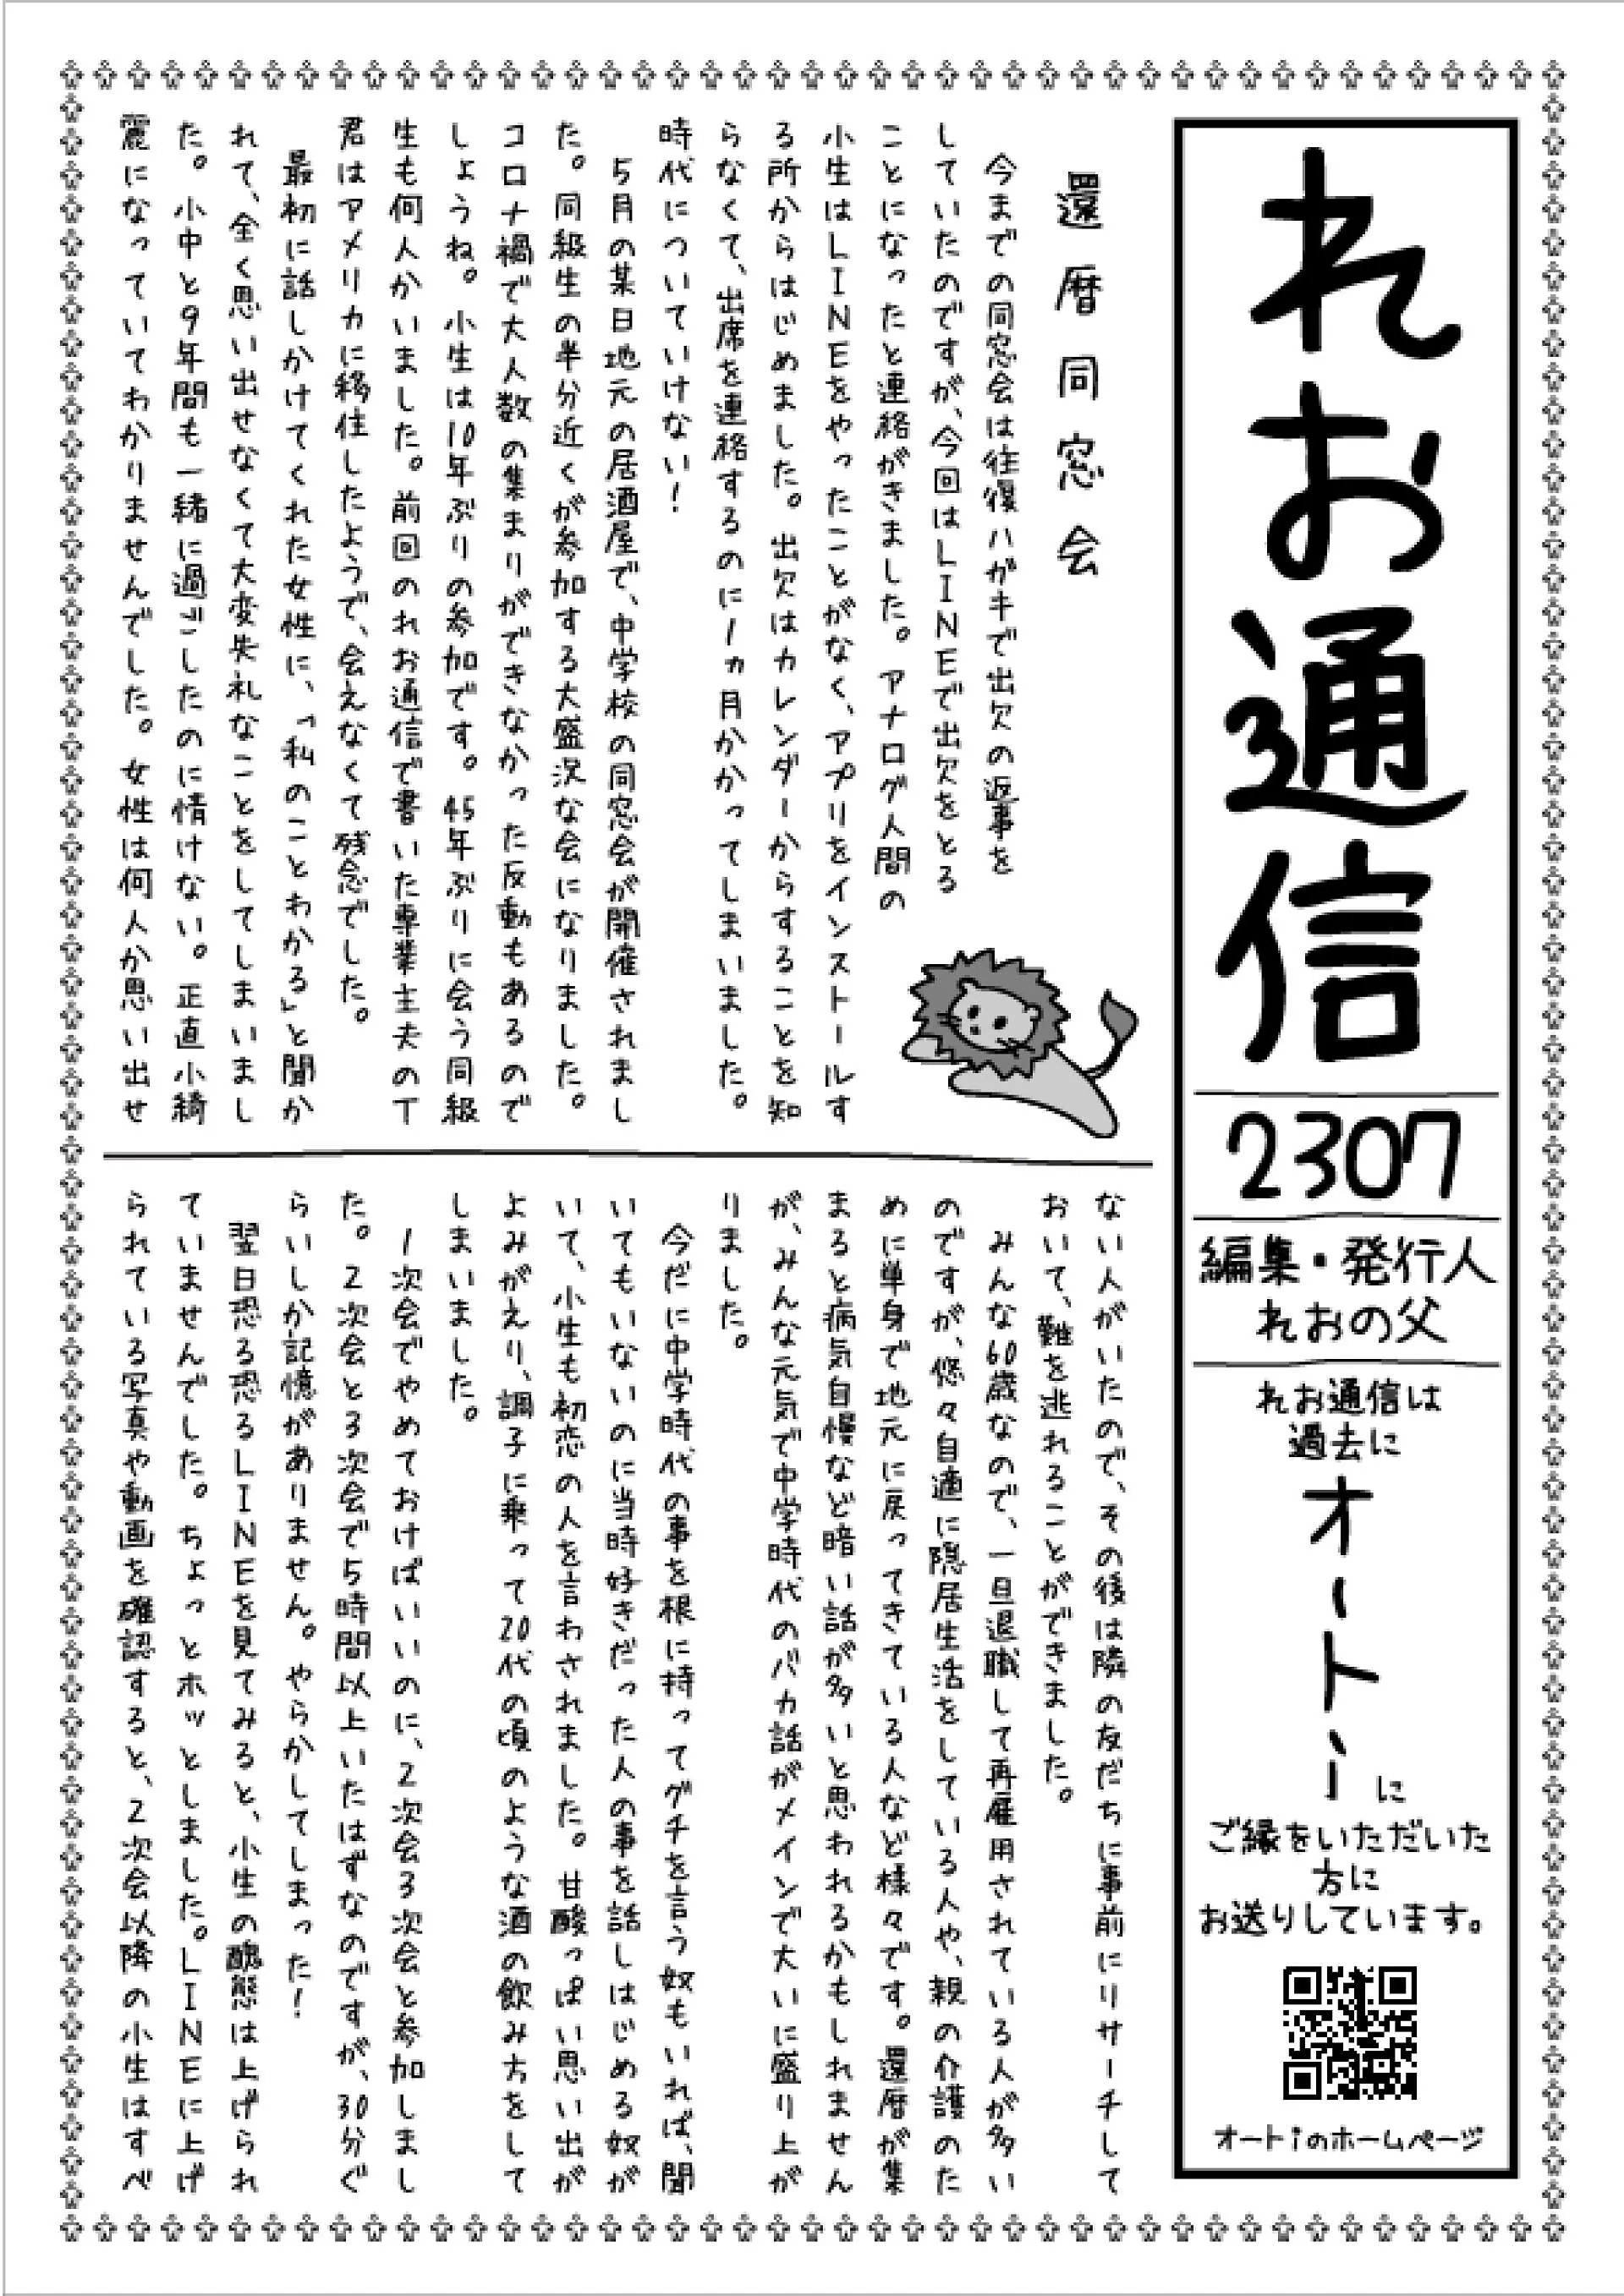 れお通信
2307
編集・発行人
れおの父
れお通信は
過去に
オートiに
ご縁をいただいた
方に
お送りしています。
オートiのホームページ
還暦同窓会
今までの同窓会は往復ハガキで出欠の返事を
していたのですが、今回はLINEで出欠をとる
ことになったと連絡がきました。アナログ人間の
小生はLINEをやったことがなく、アプリをインストールす
る所からはじめました。出欠はカレンダーからすることを知
らなくて、出席を連絡するのに1ヵ月かかってしまいました。
時代についていけない!
5月の某日地元の居酒屋で、中学校の同窓会が開催されまし
た。同級生の半分近くが参加する大盛況な会になりました。
コロナ禍で大人数の集まりができなかった反動もあるので
しょうね。小生は10年ぶりの参加です。45年ぶりに会う同級
生も何人かいました。前回のれお通信で書いた専業主夫のT
君はアメリカに移住したようで、会えなくて残念でした。
最初に話しかけてくれた女性に、「私のことわかる」と聞か
れて、全く思い出せなくて大変失礼なことをしてしまいまし
た。小中と9年間も一緒に過ごしたのに情けない。正直小綺
麗になっていてわかりませんでした。女性は何人か思い出せ
ない人がいたので、その後は隣の友だちに事前にリサーチして
おいて、難を逃れることができました。
みんな60歳なので、一旦退職して再雇用されている人が多い
のですが、悠々自適に隠居生活をしている人や、親の介護のた
めに単身で地元に戻ってきている人など様々です。還暦が集
まると病気自慢など暗い話が多いと思われるかもしれません
が、みんな元気で中学時代のバカ話がメインで大いに盛り上が
りました。
今だに中学時代の事を根に持ってグチを言う奴もいれば、聞
いてもいないのに当時好きだった人の事を話しはじめる奴が
いて、小生も初恋の人を言わされました。甘酸っぱい思い出が
よみがえり、調子に乗って20代の頃のような酒の飲み方をして
しまいました。
1次会でやめておけばいいのに、2次会3次会と参加しまし
た。2次会と3次会で5時間以上いたはずなのですが、30分ぐ
らいしか記憶がありません。やらかしてしまった!
翌日恐る恐るLINEを見てみると、小生の醜態は上げられ
ていませんでした。ちょっとホッとしました。LINEに上げ
られている写真や動画を確認すると、2次会以降の小生はすべ